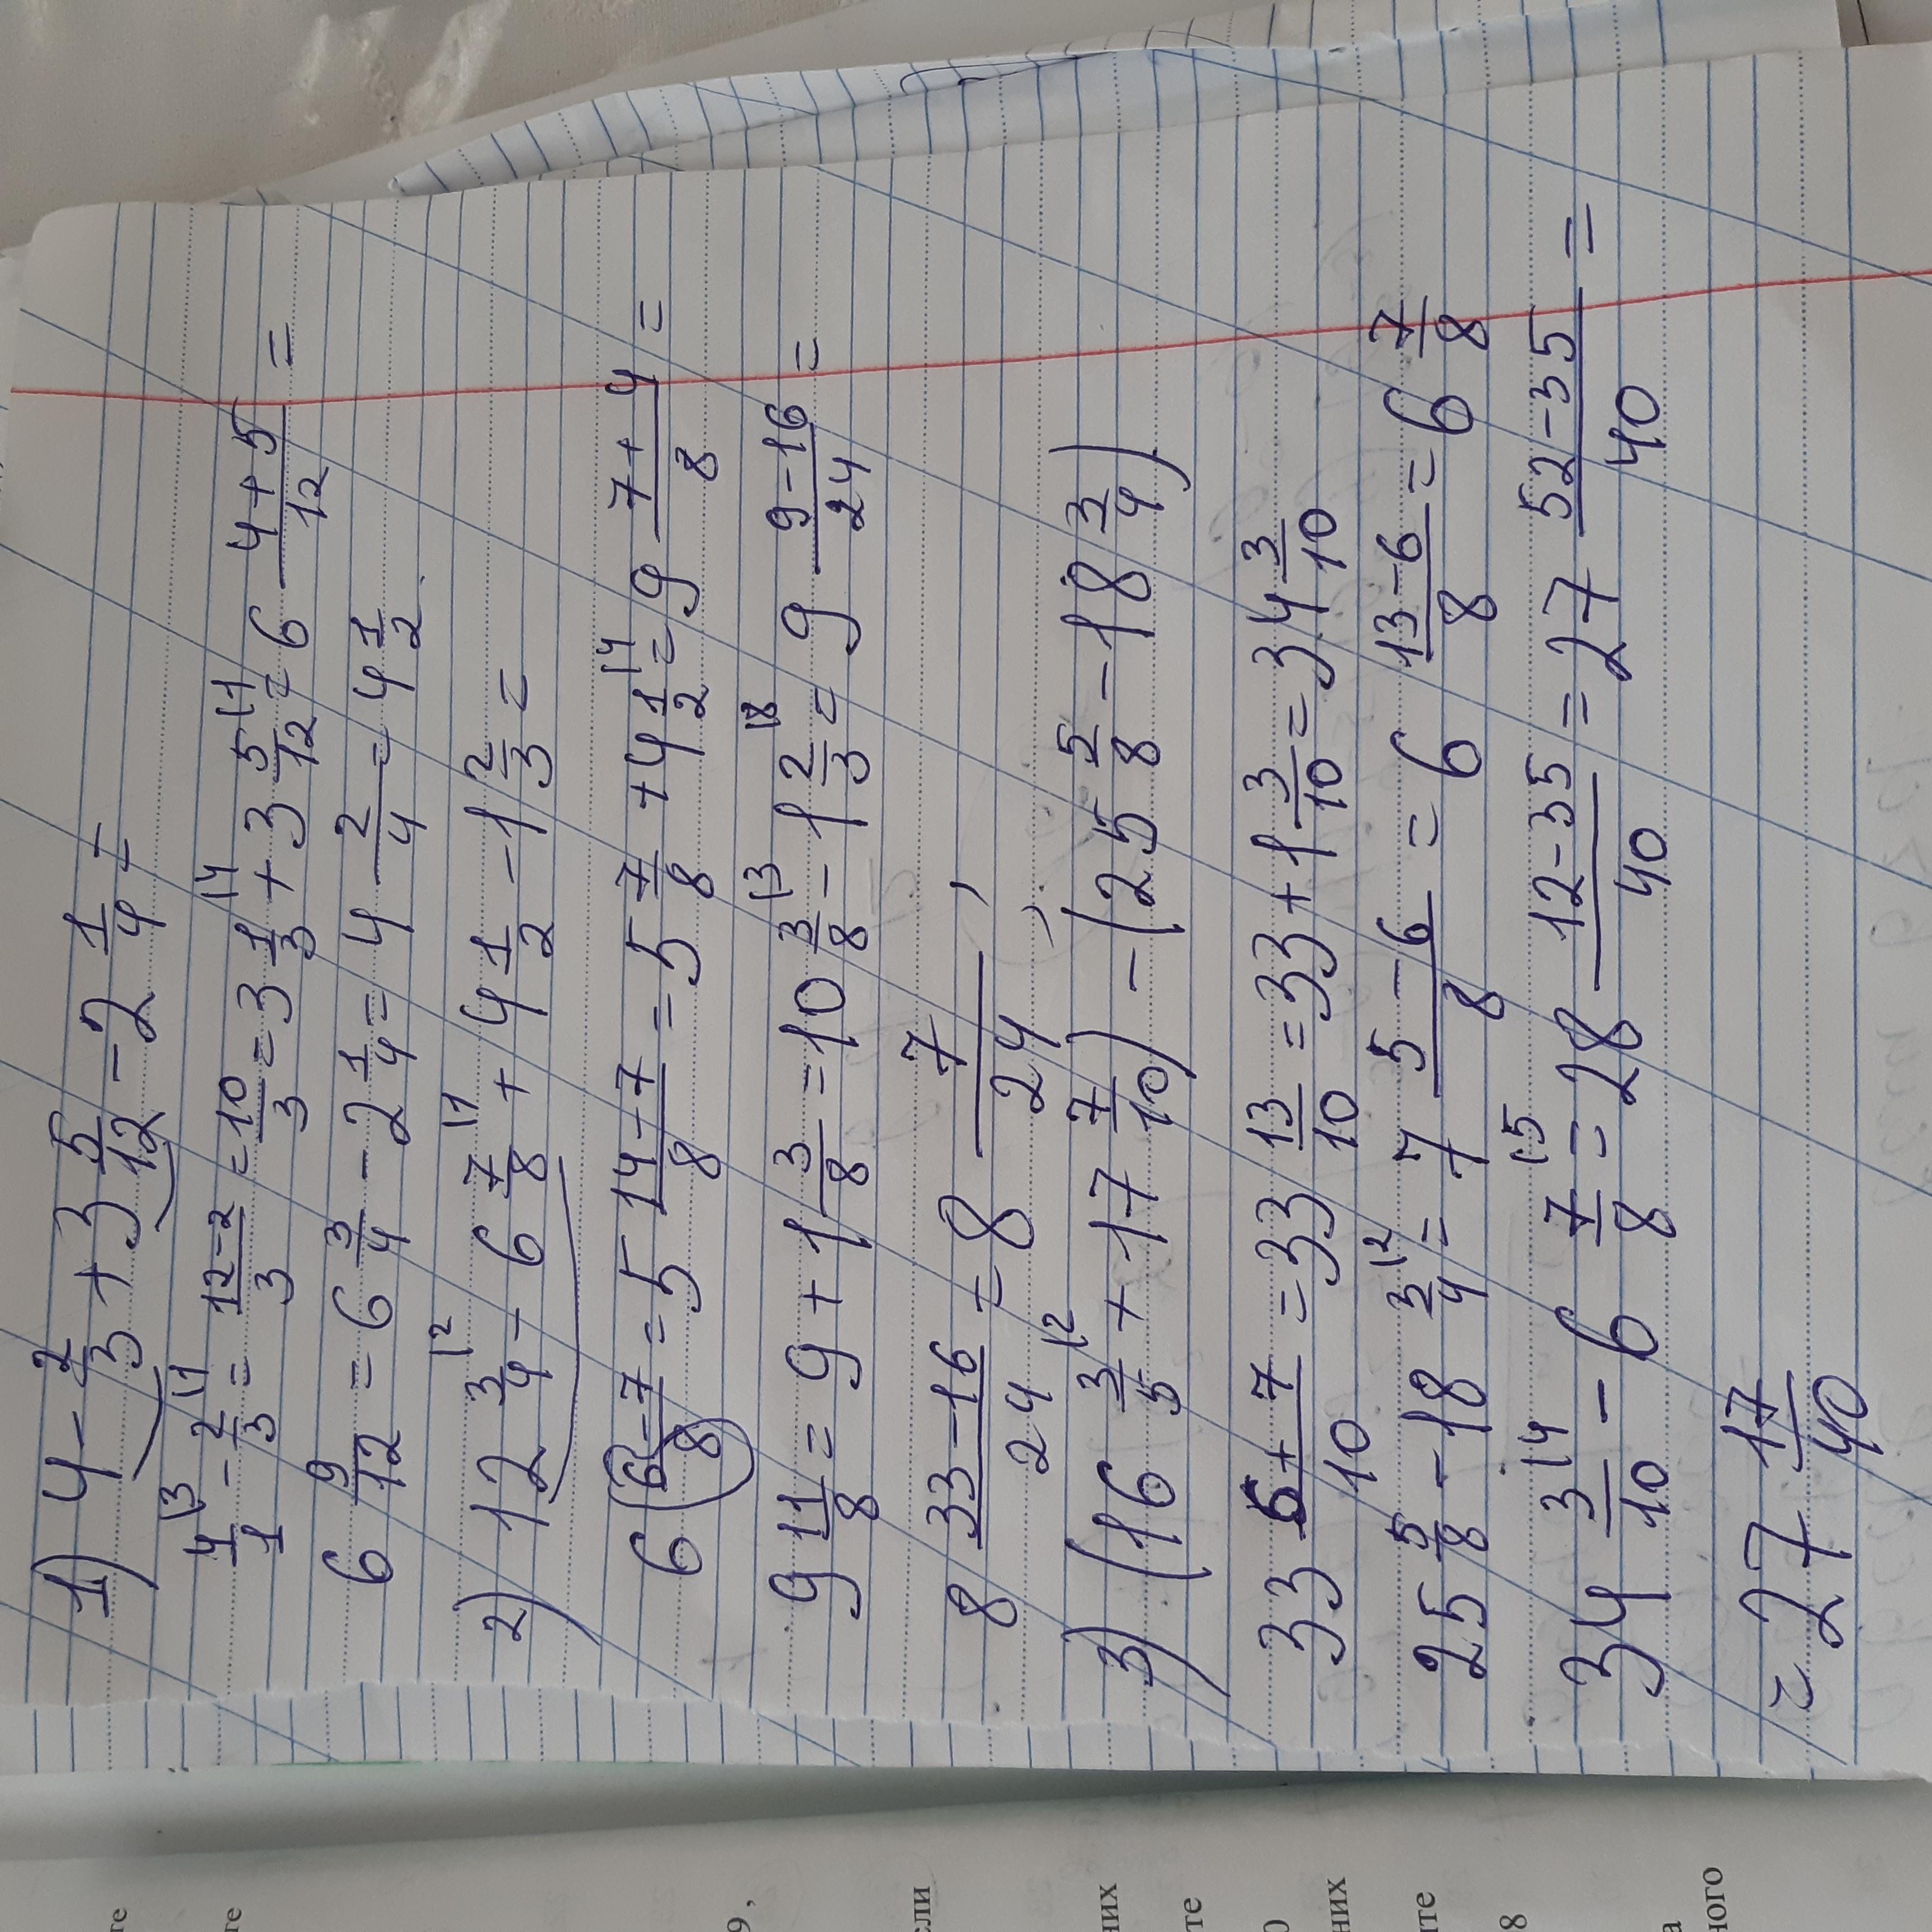 1) 4 - 2/3 + 3 5/12 - 2 1/4 =
4/1 \3 - 2/3 \1 = 12-2/3 = 10/3 = 3 1/3 \4 + 3 5/12 \1 = 6 4+5/12 =
6 9/12 = 6 3/4 - 2 1/4 = 4 2/4 = 4 1/2.
2) 12 3/4 \2 - 6 7/8 \1 + 4 1/2 - 1 2/3 =
6 6-7/8 = 5 14-7/8 = 5 7/8 + 4 1/2 \4 = 9 7+4/8 =
9 11/8 = 9 + 1 3/8 = 10 3/8 \3 - 1 2/3 \8 = 9 9-16/24 =
8 33-16/24 = 8 7/24
3) (16 3/5 \2 + 17 7/10) - (25 5/8 - 18 3/4)
33 6+7/10 = 33 13/10 = 33 + 1 3/10 = 34 3/10
25 5/8 - 18 3/4 \2 = 7 5-6/8 = 6 13-6/8 = 6 7/8
34 3/10 \4 - 6 7/8 \5 = 28 12-35/40 = 27 52-35/40 =
= 27 17/40
те
те
9,
них
те
0
них
те
8
а
ного